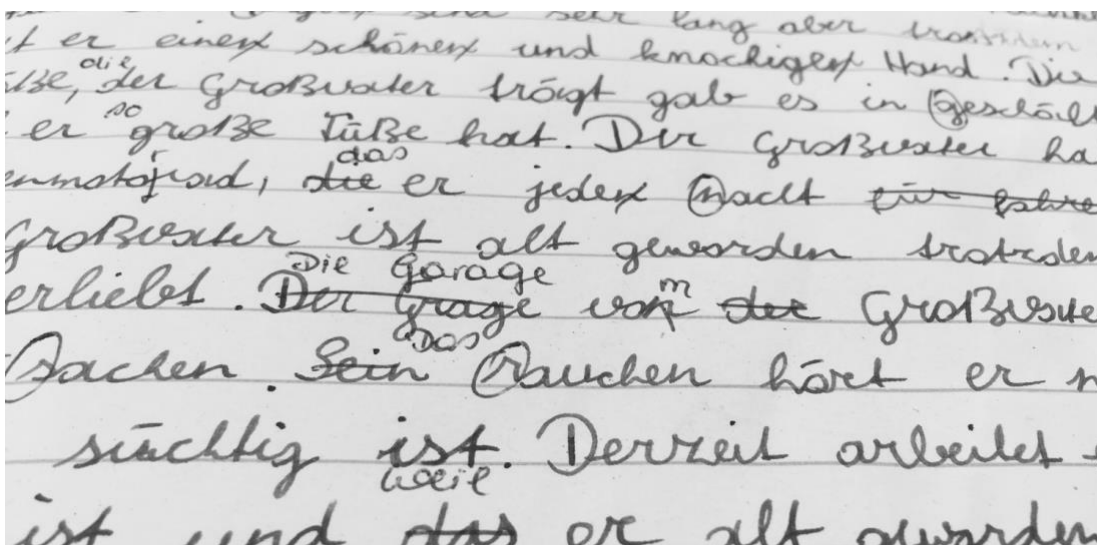 sind sehr lang aber trotzdem
er einen schönen und knochigen Hand. Die
die
der Großvater trägt gab es in Geschäft
so
er große Füße hat. Der Großvater ha
das
enmotorrad, die er jeden Nacht für fahre
Großvater ist alt geworden trotzdem
Die Garage
erliebt. Der Grage von der Großvate
m
Das
Sachen. Sein Rauchen hört er n
süchtig ist. Derzeit arbeitet
weil
ist und das er alt gworden